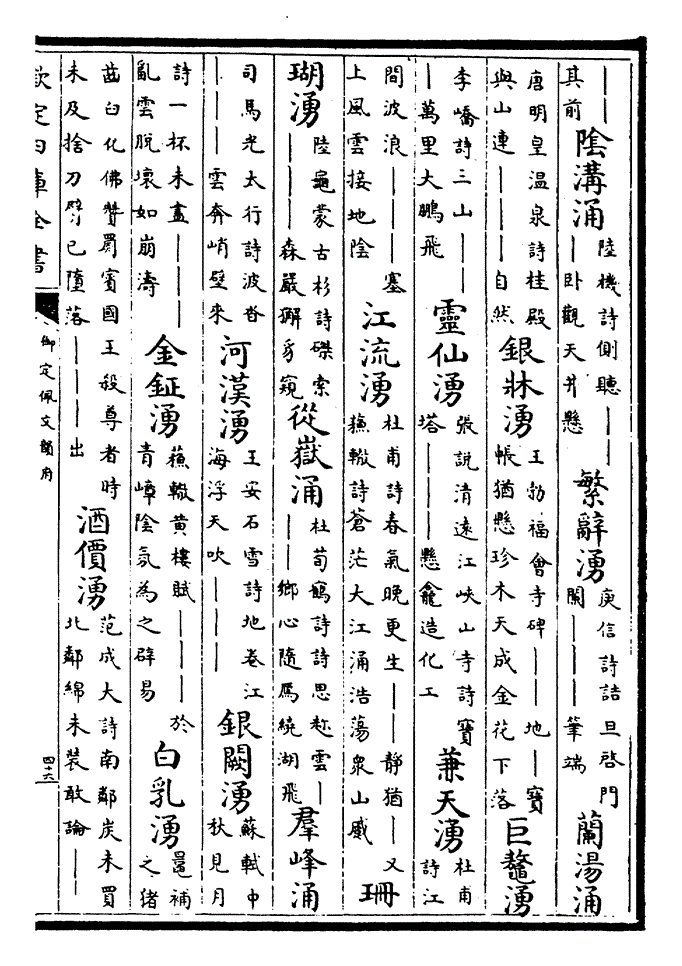 ——其前陰溝涌陸機詩側聽———卧觀天井懸繁辭湧庾信詩詰旦啓門闌———筆端蘭湯涌
唐明皇温泉詩桂殿與山連———自然銀牀湧王勃福會寺碑——地—寳帳猶懸珍木天成金花下落巨鼇湧
李嶠詩三山———萬里大鵬飛靈仙湧張說清遠江峽山寺詩寳塔———懸龕造化工兼天湧杜甫詩江
間波浪———塞上風雲接地陰江流湧杜甫詩春氣晚更生——靜猶—又蘇轍詩蒼茫大江涌浩蕩衆山蹙珊
瑚湧陸龜蒙古杉詩磔索———森嚴獬豸窺從嶽涌杜荀鶴詩詩思趂雲———鄉心隨鴈繞湖飛羣峰涌
司馬光太行詩波沓———雲奔峭壁來河漢湧王安石雪詩地卷江海浮天吹———銀闕湧蘇軾中秋見月
詩一杯未盡———亂雲脫壞如崩濤金鉦湧蘇轍黄樓賦———於青嶂陰氛為之辟易白乳湧鼂補之猪
齒臼化佛贊罽賓國王殺尊者時未及捨刀臂已墮落———出酒價湧范成大詩南鄰炭未買北鄰綿未裝敢論——
欽定四庫全書
御定佩文韻府
四十六